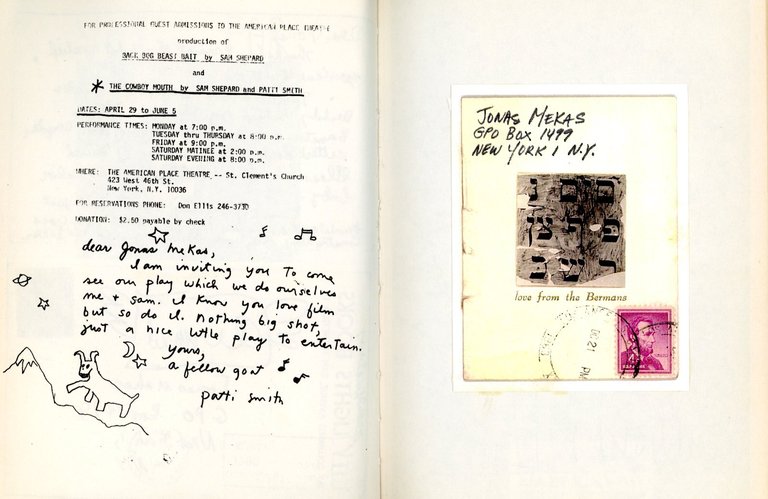 FOR PROFESSIONAL GUEST ADMISSIONS TO THE AMERICAN PLACE THEATRE
production of
BACK BOG BEAST BAIT by SAM SHEPARD
and
* THE COWBOY MOUTH by SAM SHEPARD and PATTI SMITH
DATES: APRIL 29 to JUNE 5
PERFORMANCE TIMES: MONDAY at 7:00 p.m.
TUESDAY thru THURSDAY at 8:00 p.m.
FRIDAY at 9:00 p.m.
SATURDAY MATINEE at 2:00 p.m.
SATURDAY EVENING at 8:00 p.m.
WHERE: THE AMERICAN PLACE THEATRE -- St. Clement's Church
423 West 46th St.
New York, N.Y. 10036
FOR RESERVATIONS PHONE: Don Ellis 246-3730
DONATION: $2.50 payable by check
dear Jonas Mekas,
I am inviting you To come
see our play which we do ourselves
me + sam. I know you love film
but so do I. nothing big shot,
just a nice little play to entertain.
yours,
a fellow goat
patti smith
JONAS MEKAS
GPO BOX 1499
NEW YORK 1 N.Y.
love from the Bermans
21
PM
4¢